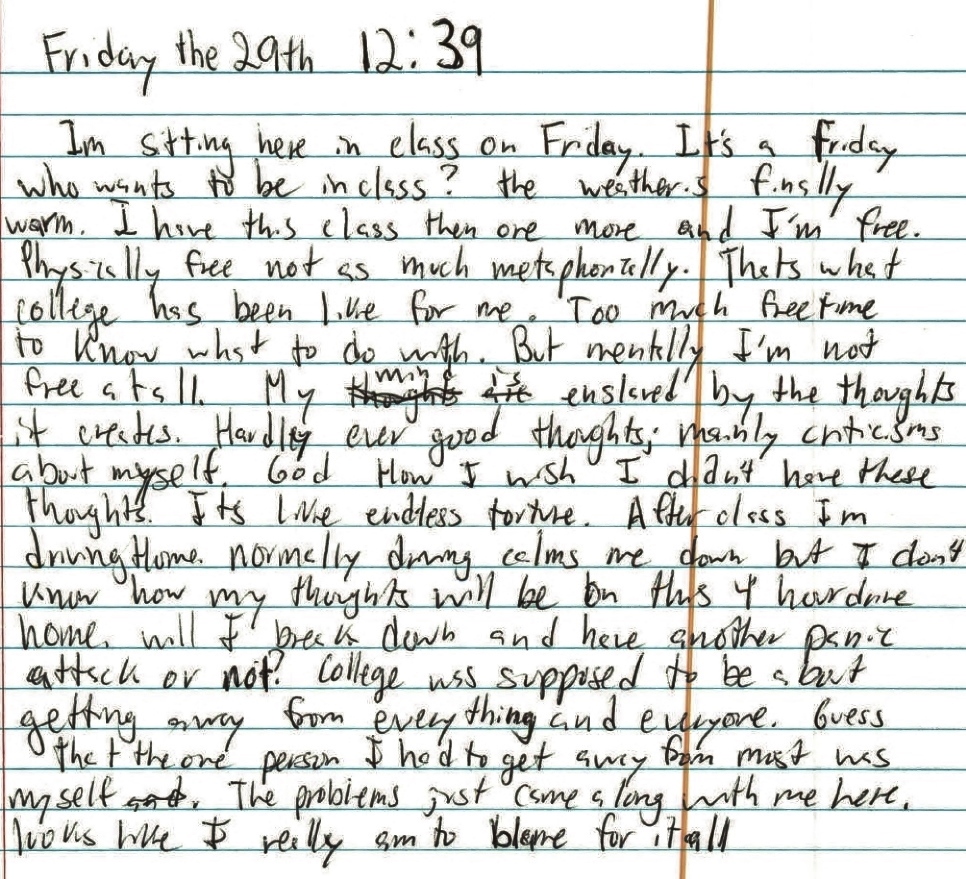 Friday the 29th 12:39
Im sitting here in class on Friday. It's a friday
who wants to be in class? the weather.s finally
warm. I have this class then one more and I'm free.
Physically free not as much metaphorically. Thats what
college has been like for me. Too much freetime
to know what to do with. But mentally I'm not
free at all. My mind is enslaved by the thoughts
it creates. Hardley ever good thoughts; mainly criticisms
about myself. God How I wish I didn't have these
thoughts. Its like endless torture. After class Im
driving Home. normally driving calms me down but I don't
know how my thoughts will be on this 4 hour drive
home. will I break down and have another panic
attack or not? College was supposed to be about
getting away from everything and everyone. Guess
that the one person I had to get away from most was
myself and. The problems just came along with me here.
looks like I really am to blame for it all